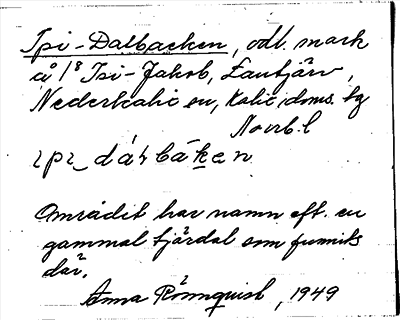 Ipi-Dalbacken, odl. mark
å 1/8 Isi-Jakob, Lantjärv,
Nederkalix sn, Kalix doms. tg
Norrb. l
Området har namn eft. en
gammal tjärdal som funnits
där.
Anna Rönnquist, 1949